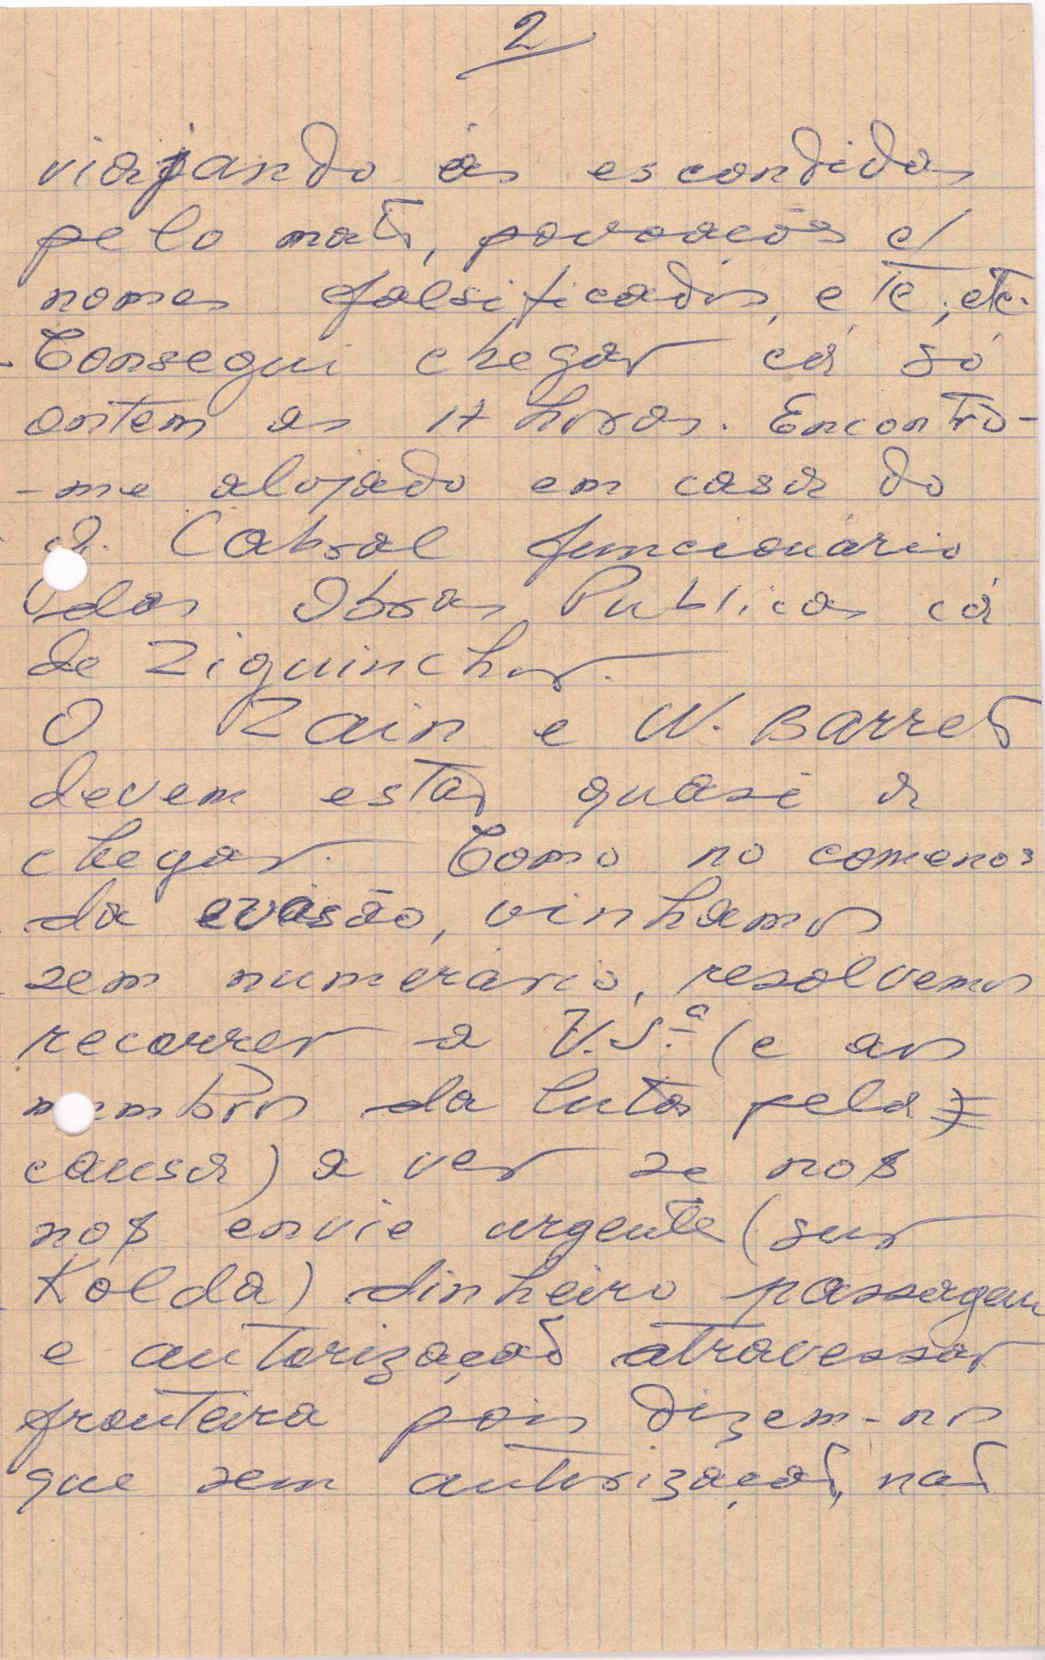 2
viajando às escondidas
pelo mato, povoacões c/
nomes falsificados, etc, etc.
Consegui chegar cá só
ontem as 17 horas. Encontro-
-me alojado em casa do
Cabral funcionário
das Obras Publicas cá
de Ziguinchor.
O Zain e W. Barreto
devem estar quasi a
chegar. Como no comenos
da evasão, vinhamos
sem numerário, resolvemos
recorrer a V.S.ª (e aos
membros da luta pela
causa) a ver se nos
nos envie urgente (sur
Kolda) dinheiro passagem
e autorização atravessar
fronteira pois dizem-nos
que sem autorização, não